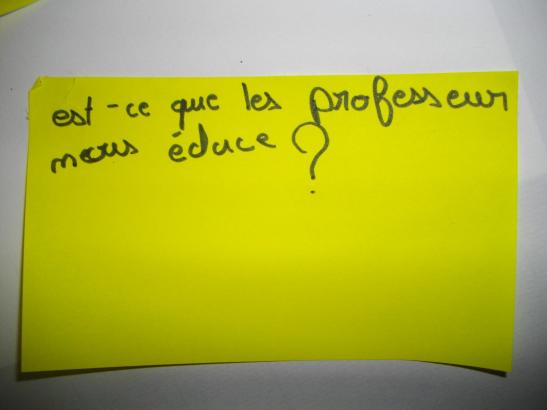 est-ce que les professeur
nous éduce ?